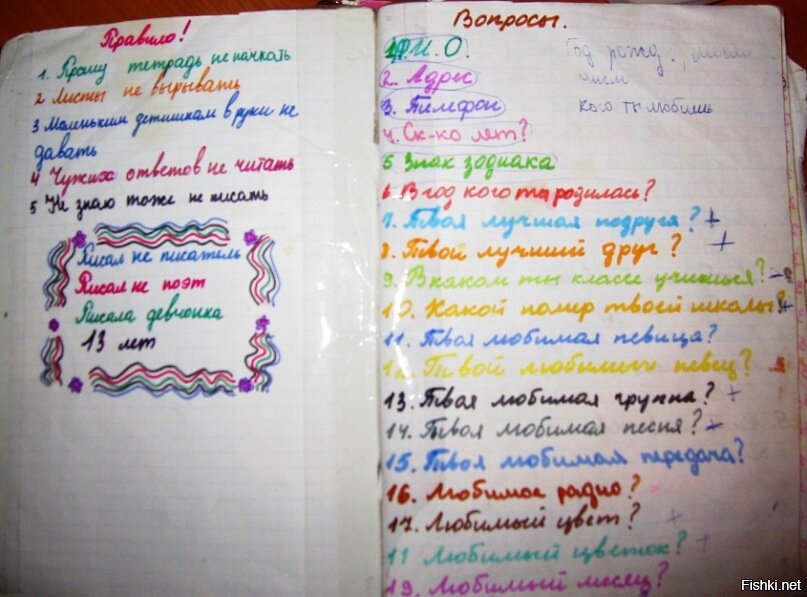 Правило!
1. Прошу тетрадь не пачкать
2 Листы не вырывать
3 Маленьким детишкам в руки не
давать
4 Чужих ответов не читать
5 Не знаю тоже не писать
Писал не писатель
Писал не поэт
Писала девчонка
13 лет
Вопросы.
1. Ф.И.О.
2. Адрес
3. Телефон
4. Ск-ко лет?
5 Знак зодиака
6. В год кого ты родилась?
7. Твоя лучшая подруга? +
8. Твой лучший друг? +
9. В каком ты классе учишься?
10. Какой номер твоей школы? +
11. Твоя любимая певица?
12. Твой любимый певец?
13. Твая любимая группа? +
14. Твоя любимая песня? +
15. Твоя любимая передача?
16. Любимое радио?
17. Любимый цвет? +
11 Любимый цветок? +
19. Любимый месяц?
Год рожд.,
число
кого ты любишь
Fishki.net